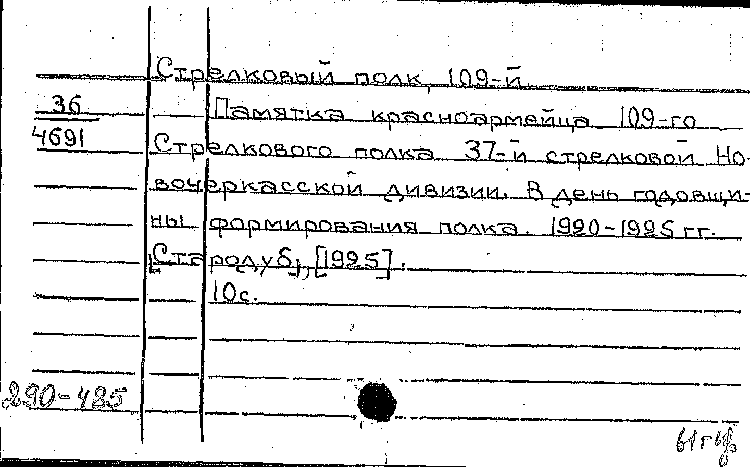 Стрелковый полк, 109-й
36
Памятка красноармейца 109-го
4691
Стрелкового полка 37-й стрелковой Но-
вочеркасской дивизии. В день годовщи-
ны формирования полка. 1920-1925 гг.
[Стародуб], [1925].
10с.
290-485